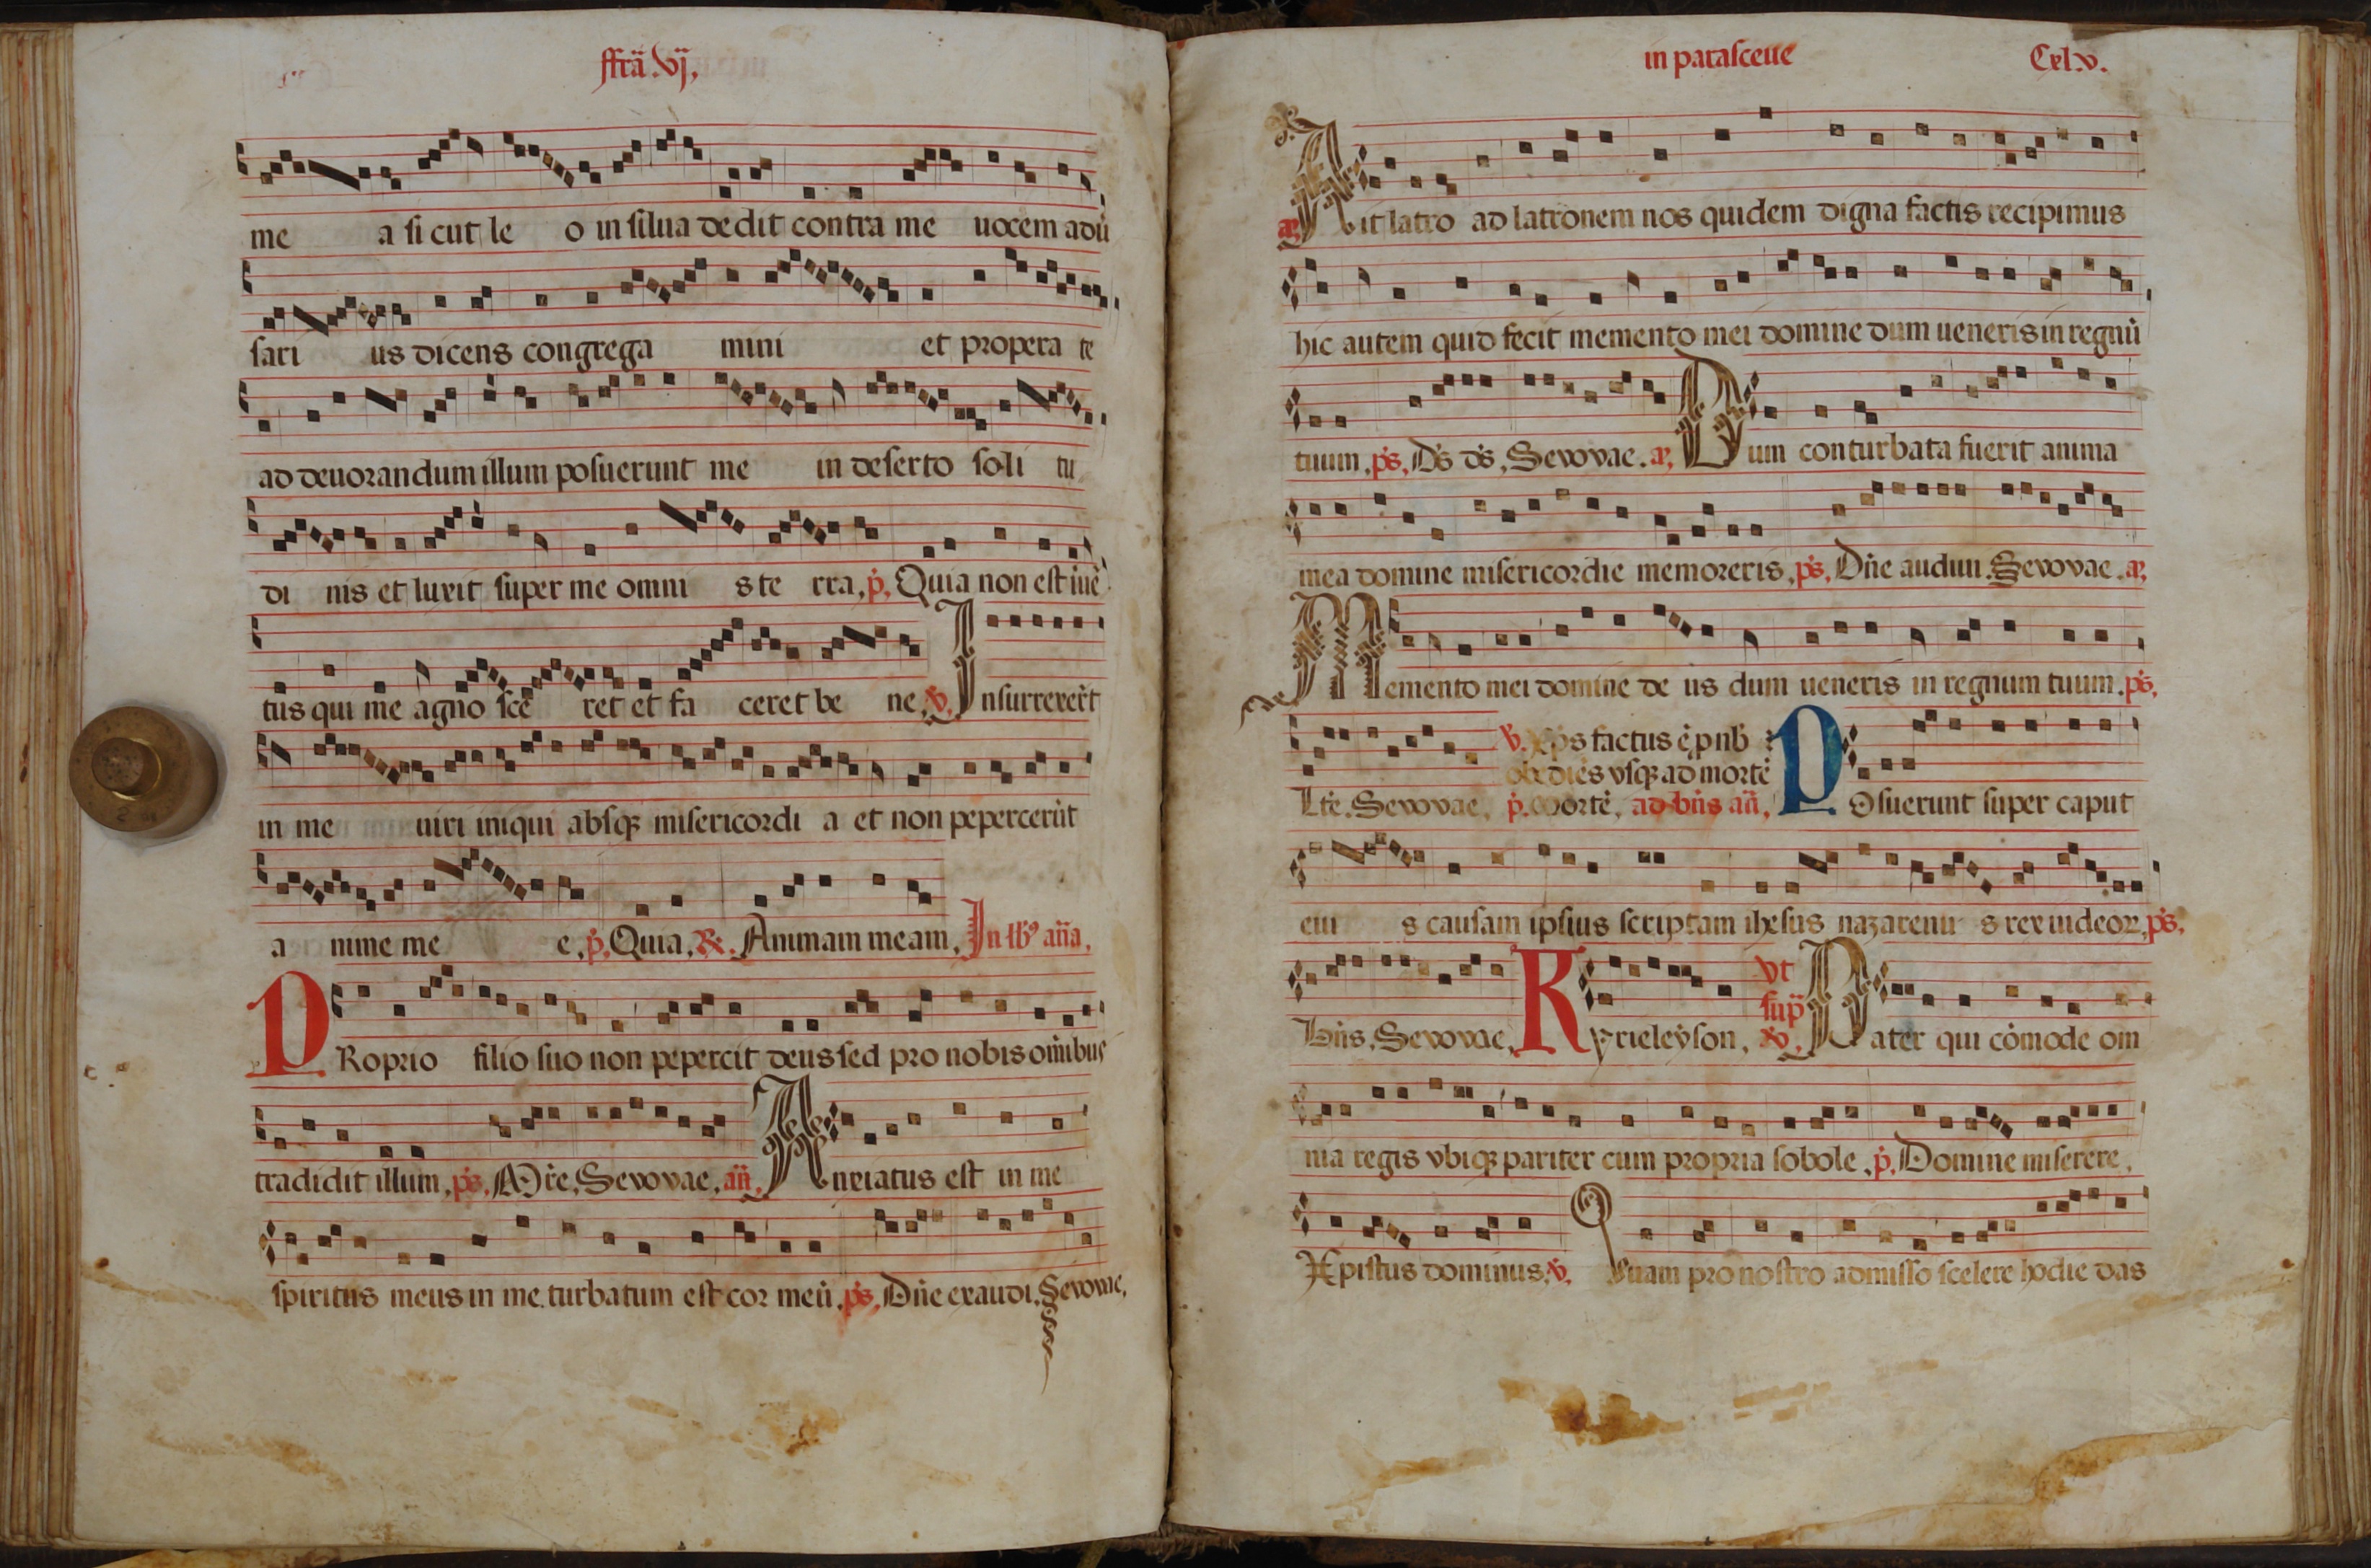 ffrã .vj.
me a si cut le o in silua dedit contra me uocem adũ
sari us dicens congrega mini et propera te
ad deuorandum illum posuerunt me in deserto soli tu
di nis et luxit super me omni s te rra, p̃. Quia non est iuẽ
tus qui me agno sce ret et fa ceret be ne. ṽ. Insurrexert̃
in me uiri iniqui absqꝫ misericordi a et non pepercerũt
a nime me e. p̃. Quia. R̃. Animam meam. In lb̃ꝰ añ̃a.
PRoprio filio suo non pepercit deus sed pro nobis om̃ibus
tradidit illum. pš. M̃re. Seuouae. añ. Anxiatus est in me
spiritus meus in me. turbatum est cor meũ. pš. Dñe exaudi. Seuouae.
in parasceue Cxl.v.
Ait latro ad latronem nos quidem digna factis recipimus
hic autem quid fecit memento mei domine dum ueneris in regnũ
tuum. pš. Dš dš. Seuouae. Dum conturbata fuerit anima
mea domine misericordie memoreris. pš. Dñe audiui. Seuouae.
Memento mei domine de us dum ueneris in regnum tuum. pš.
ṽ. Xp̃s factus ẽ p nb̃
obediẽs vsqꝫ ad mortẽ
Lt̃e. Seuouae. p̃. Mortẽ. ad bñs añ. Posuerunt super caput
eiu s causam ipsius scriptam ihesus nazarenu s rex iudeoꝝ. pš.
Bñs. Seuouae. Kyrieleyson. vt sup̃ ṽ. Pater qui cõmode om
nia regis vbiqꝫ pariter cum propria sobole. p̃. Domine miserere.
Xpistus dominus. ṽ. Quam pro nostro admisso scelere hodie das